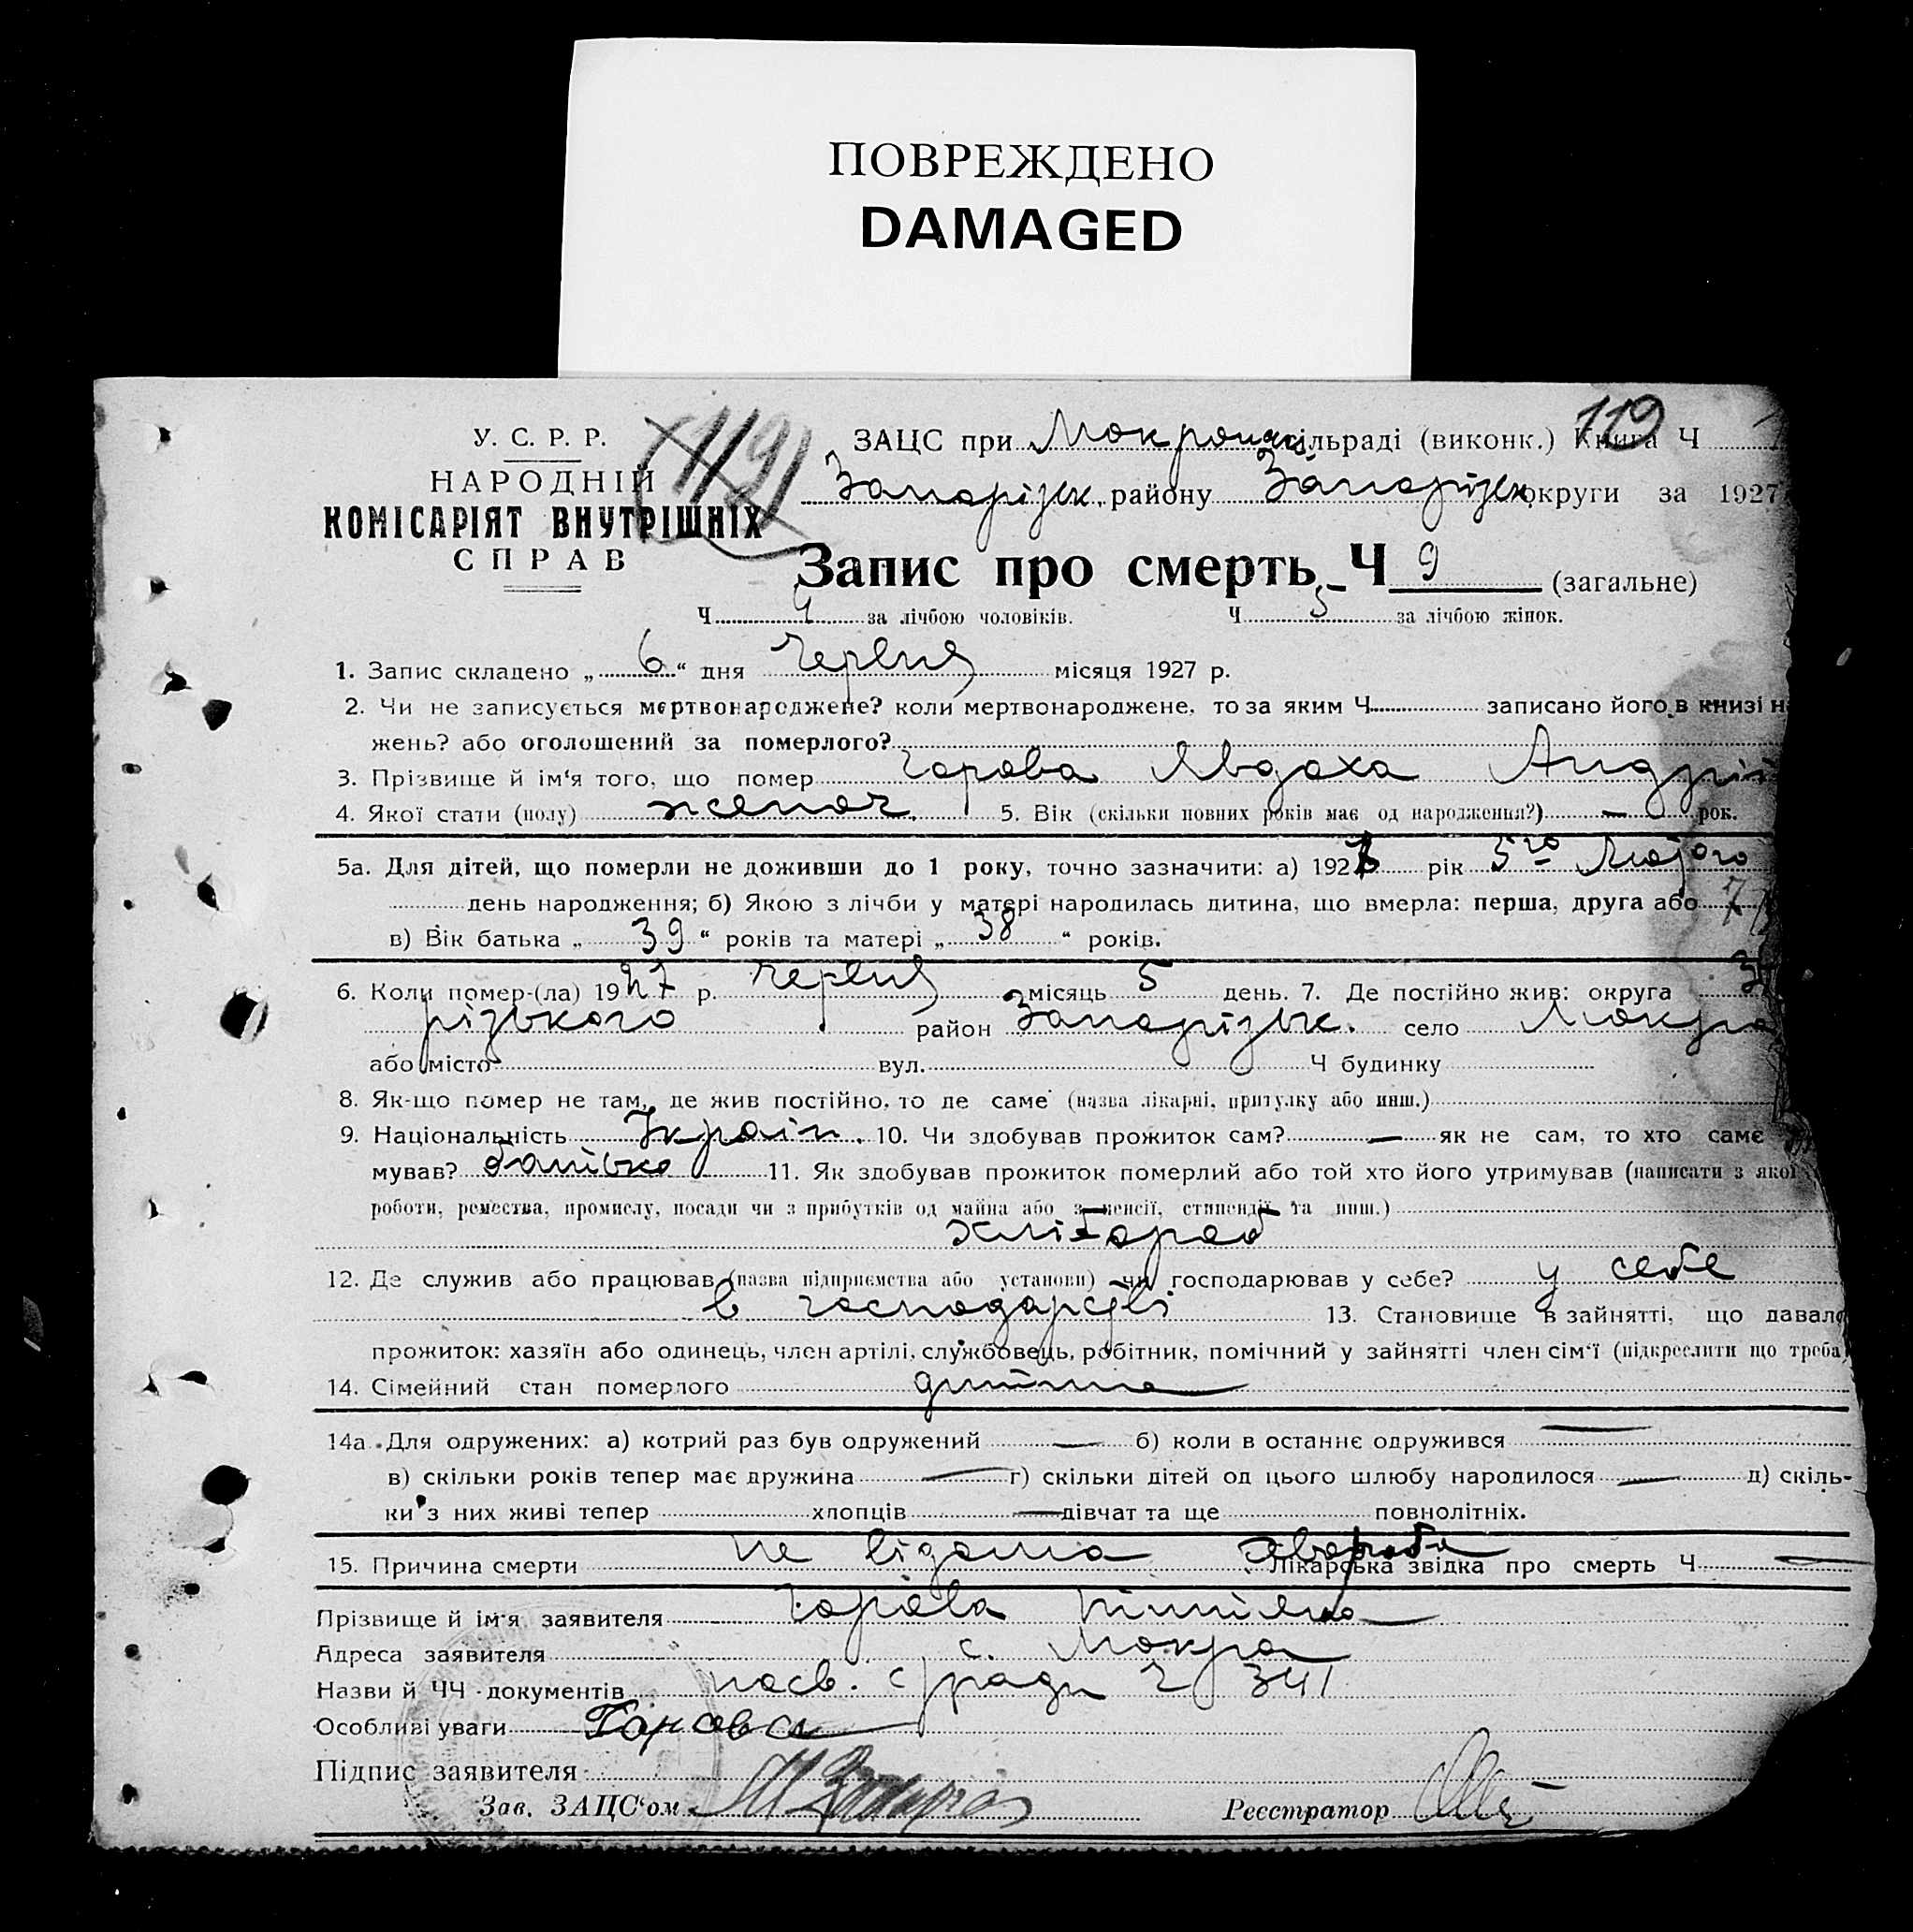 ПОВРЕЖДЕНО
DAMAGED
119
У. С. Р. Р.
НАРОДНІЙ
КОМІСАРІЯТ ВНУТРІШНІХ
СПРАВ
(119)
ЗАЦС при Мокрянск. сільраді (виконк.) Книга Ч
Запоріжк. району Запоріжк. округи за 1927
Запис про смерть Ч 9 (загальне)
Ч 4 за лічбою чоловіків. Ч 5 за лічбою жінок.
1. Запис складено „ 6 “ дня червня місяця 1927 р.
2. Чи не записується мертвонароджене? коли мертвонароджене, то за яким Ч записано його в книзі н
жень? або оголошений за померлого?
3. Прізвище й ім‘я того, що помер Горова Явдоха Андрії
4. Якої стати (полу) женоч. 5. Вік (скільки повних років має од народження?) — рок.
5а. Для дітей, що померли не доживши до 1 року, точно зазначити: а) 1927 рік 5го Лютого
день народження; б) Якою з лічби у матері народилась дитина, що вмерла: перша, друга або 7
в) Вік батька „ 39 “ років та матері „ 38 “ років.
6. Коли помер-(ла) 1927 р. червня місяць 5 день. 7. Де постійно жив: округа
різького район Запорізьк. село Мокра
або місто вул. Ч будинку
8. Як-що помер не там, де жив постійно, то де саме (назва лікарні, притулку або инш.)
9. Національність Україн. 10. Чи здобував прожиток сам? — як не сам, то хто саме
мував? батько 11. Як здобував прожиток померлий або той хто його утримував (написати з якої
роботи, ремества, промислу, посади чи з прибутків од майна або з пенсії, стипендії та инш.)
хлібороб
12. Де служив або працював (назва підприємства або установи) чи господарював у себе? у себе
в господарстві 13. Становище в зайнятті, що давало
прожиток: хазяїн або одинець, член артілі, службовець, робітник, помічний у зайнятті член сім‘ї (підкреслити що треба)
14. Сімейний стан померлого дитина
14а. Для одружених: а) котрий раз був одружений — б) коли в останнє одружився —
в) скільки років тепер має дружина — г) скільки дітей од цього шлюбу народилося — д) скіль-
ки з них живі тепер хлопців — дівчат та ще повнолітніх.
15. Причина смерти не відома хвороба Лікарська звідка про смерть Ч —
Прізвище й ім‘я заявителя Горова
Адреса заявителя с. Мокра
Назви й ЧЧ документів посв. с/ради Ч 341
Особливі уваги Горова
Підпис заявителя
Зав. ЗАЦС‘ом
Реєстратор